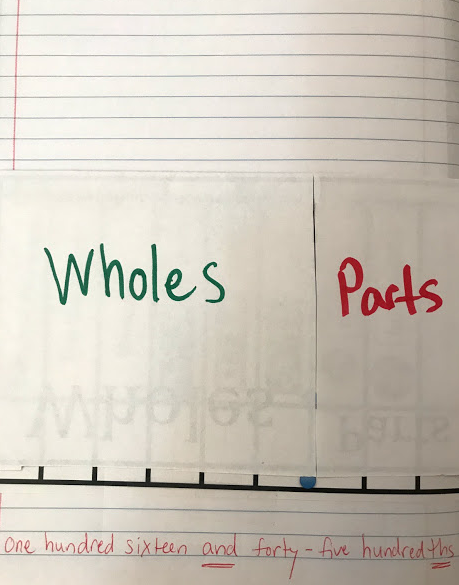 Wholes
Parts
one hundred sixteen and forty-five hundredths